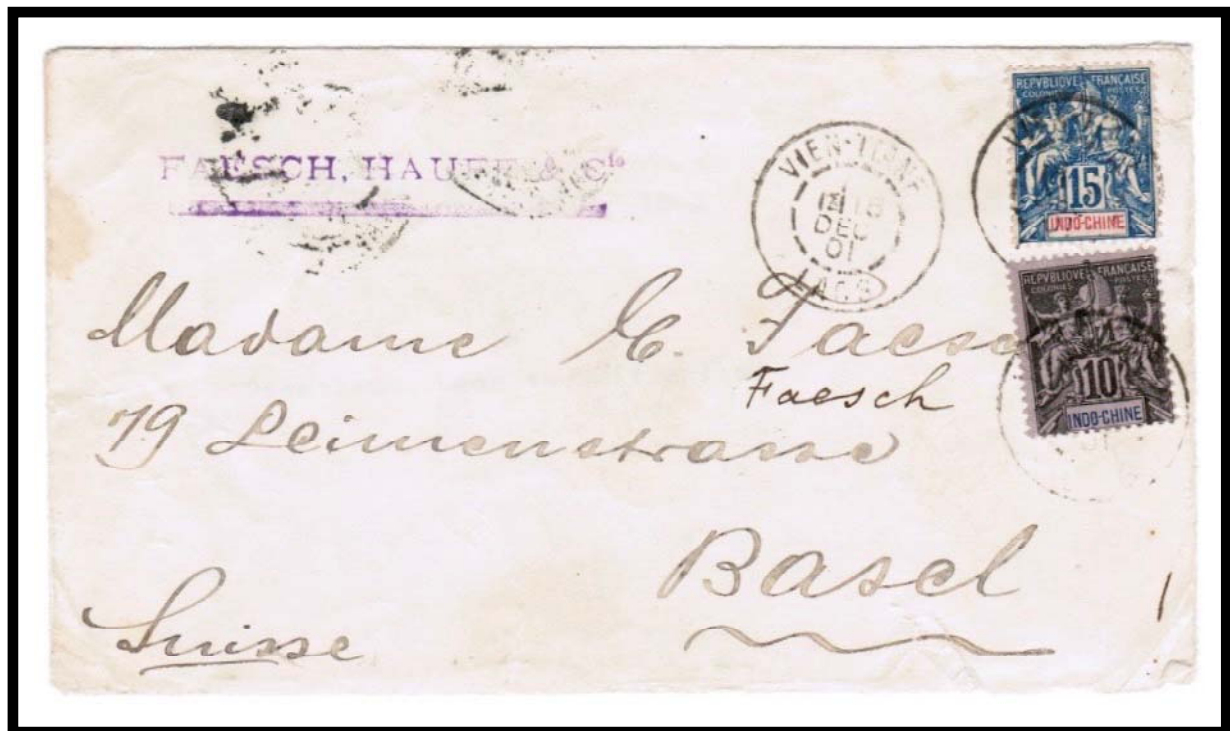 FAESCH, HAUFF & Cie
VIEN-TIANE
15
DEC
01
LAOS
REPVBLIQVE FRANÇAISE
COLONIES POSTES
15
INDO-CHINE
REPVBLIQVE FRANÇAISE
COLONIES POSTES
10
INDO-CHINE
Madame E. Faesch
Faesch
79 Leimenstrasse
Basel
Suisse